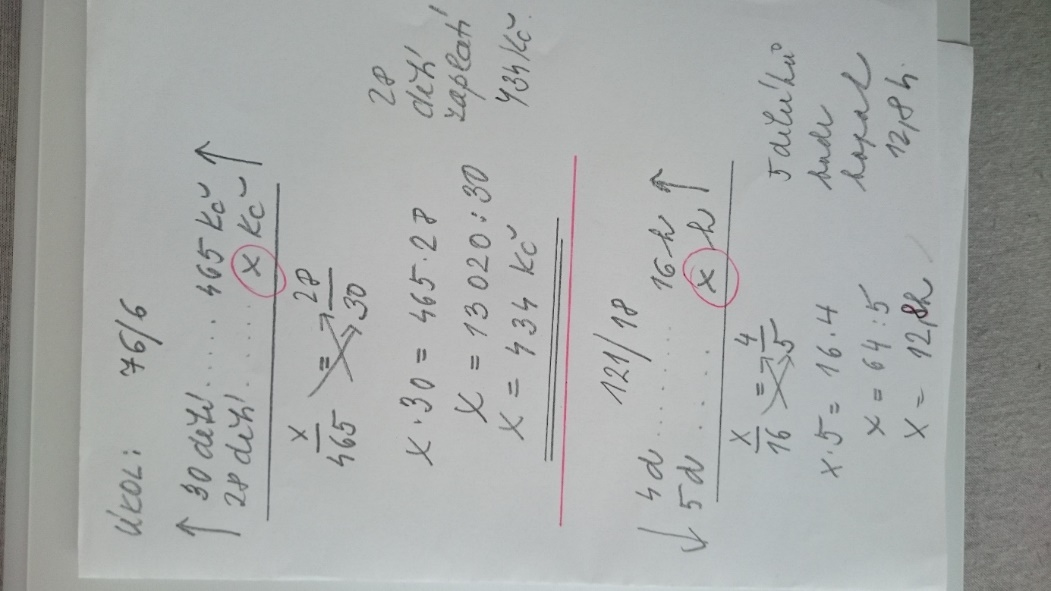 ÚKOL: 76/6
↑ 30 dětí ..... 465 Kč ↑
28 dětí ..... x Kč
x/465 = 28/30
x · 30 = 465 · 28
x = 13 020 : 30
x = 434 Kč
28
dětí
zaplatí
434 Kč.
121/18
↓ 4d ......... 16 h ↑
5d . . . . x h
x/16 = 4/5
x · 5 = 16 · 4
x = 64 : 5
x = 12,8h
5 dělníků
bude
kopat
12,8 h.